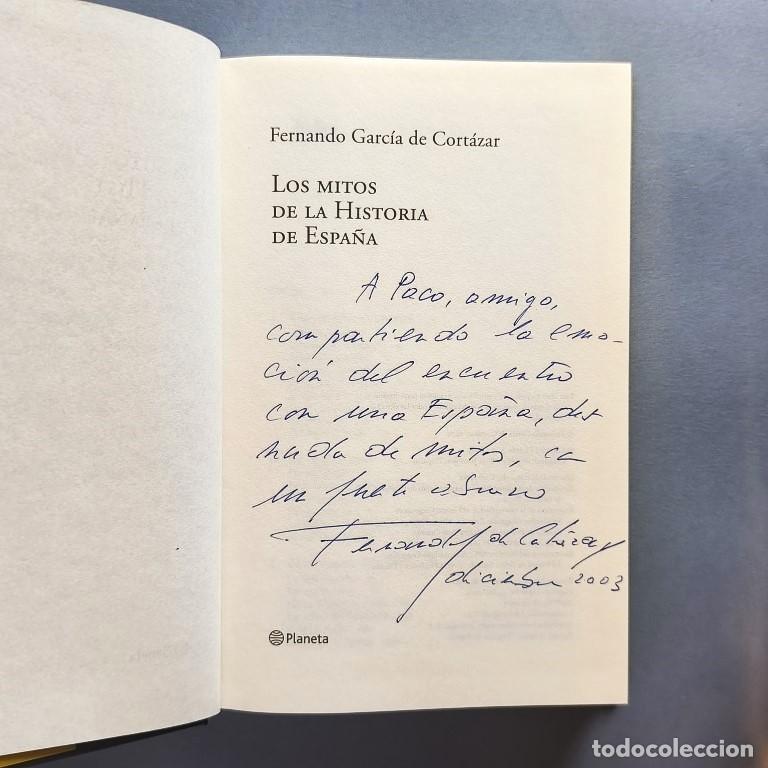 Fernando García de Cortázar
Los mitos
de la Historia
de España
A Paco, amigo,
compartiendo la emo-
ción del encuentro
con una España, des
nuda de mitos, con
un fuerte abrazo
Fernando G. de Cortázar
diciembre 2003
Planeta
todocoleccion